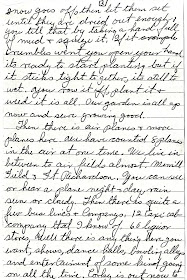 snow goes off then let them set
until they are dried out enough,
you tell that by taking a hand full
of mud & squeeze it. If it
crumbles when you open your hand
its ready to start planting but if
it sticks tight together, its still to
wet. You row it off, plant it &
weed it is all. Our garden is all up
now and sure growing good.
Then there is air planes & more
planes here. Have counted
in the air at one time. We live in
between to air fields almost. Merrill
Field & Ft. Richardson. You can see
or hear a plane night & day, rain
sun or cloudy. Then there is quite a
few bus lines & Companys, 12 taxi cab
company that I know of 66 liquor
stores. Well there is any thing here you
want, shows, dance Halls, bowling alley
and entertainment of some thing going
on all the time.